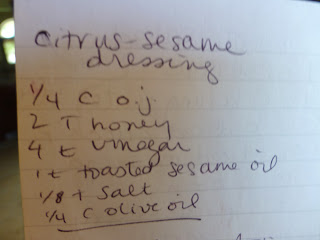 citrus-sesame
dressing
1/4 C o.j.
2 T honey
4 t vinegar
1 t toasted sesame oil
1/8 t salt
1/4 C olive oil